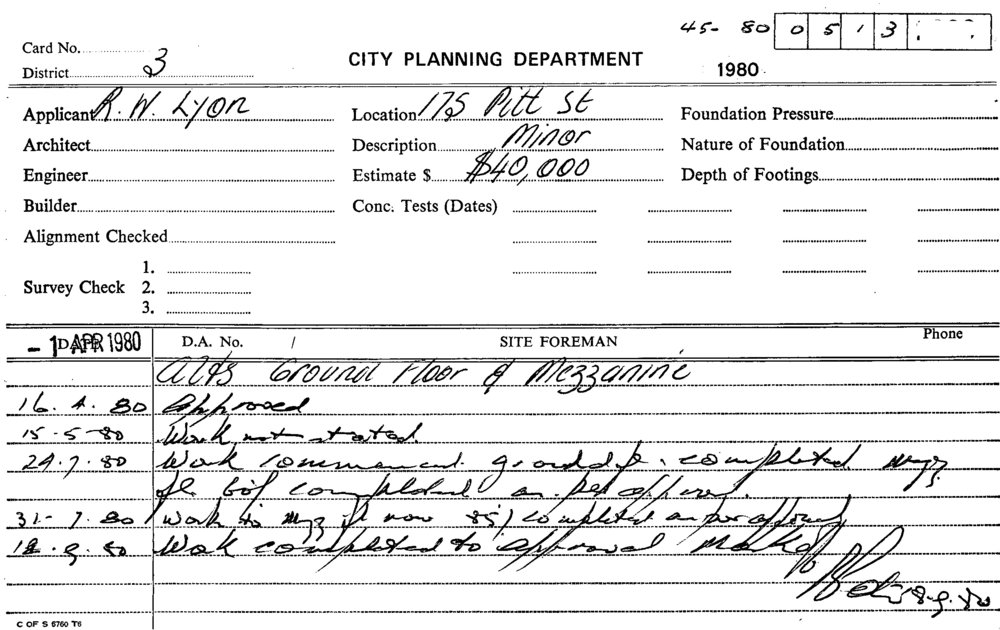 45- 80 0513
Card No.
District 3
CITY PLANNING DEPARTMENT
1980
Applicant R. W. Lyon
Location 175 Pitt St
Foundation Pressure
Architect
Description Minor
Nature of Foundation
Engineer
Estimate $ $40,000
Depth of Footings
Builder
Conc. Tests (Dates)
Alignment Checked
1.
Survey Check 2.
3.
- 1 APR 1980 D.A. No. / SITE FOREMAN Phone
Alts Ground Floor & Mezzanine
16. 4. 80 Approved
15-5-80 Work not stated.
29.7.80 Work commenced. completed mezz
fl. 60% completed as per
31-7.80 Work to mezz fl now 85% completed as per
9.80 Work completed to approval
18.9.80
C OF S 6760 T6